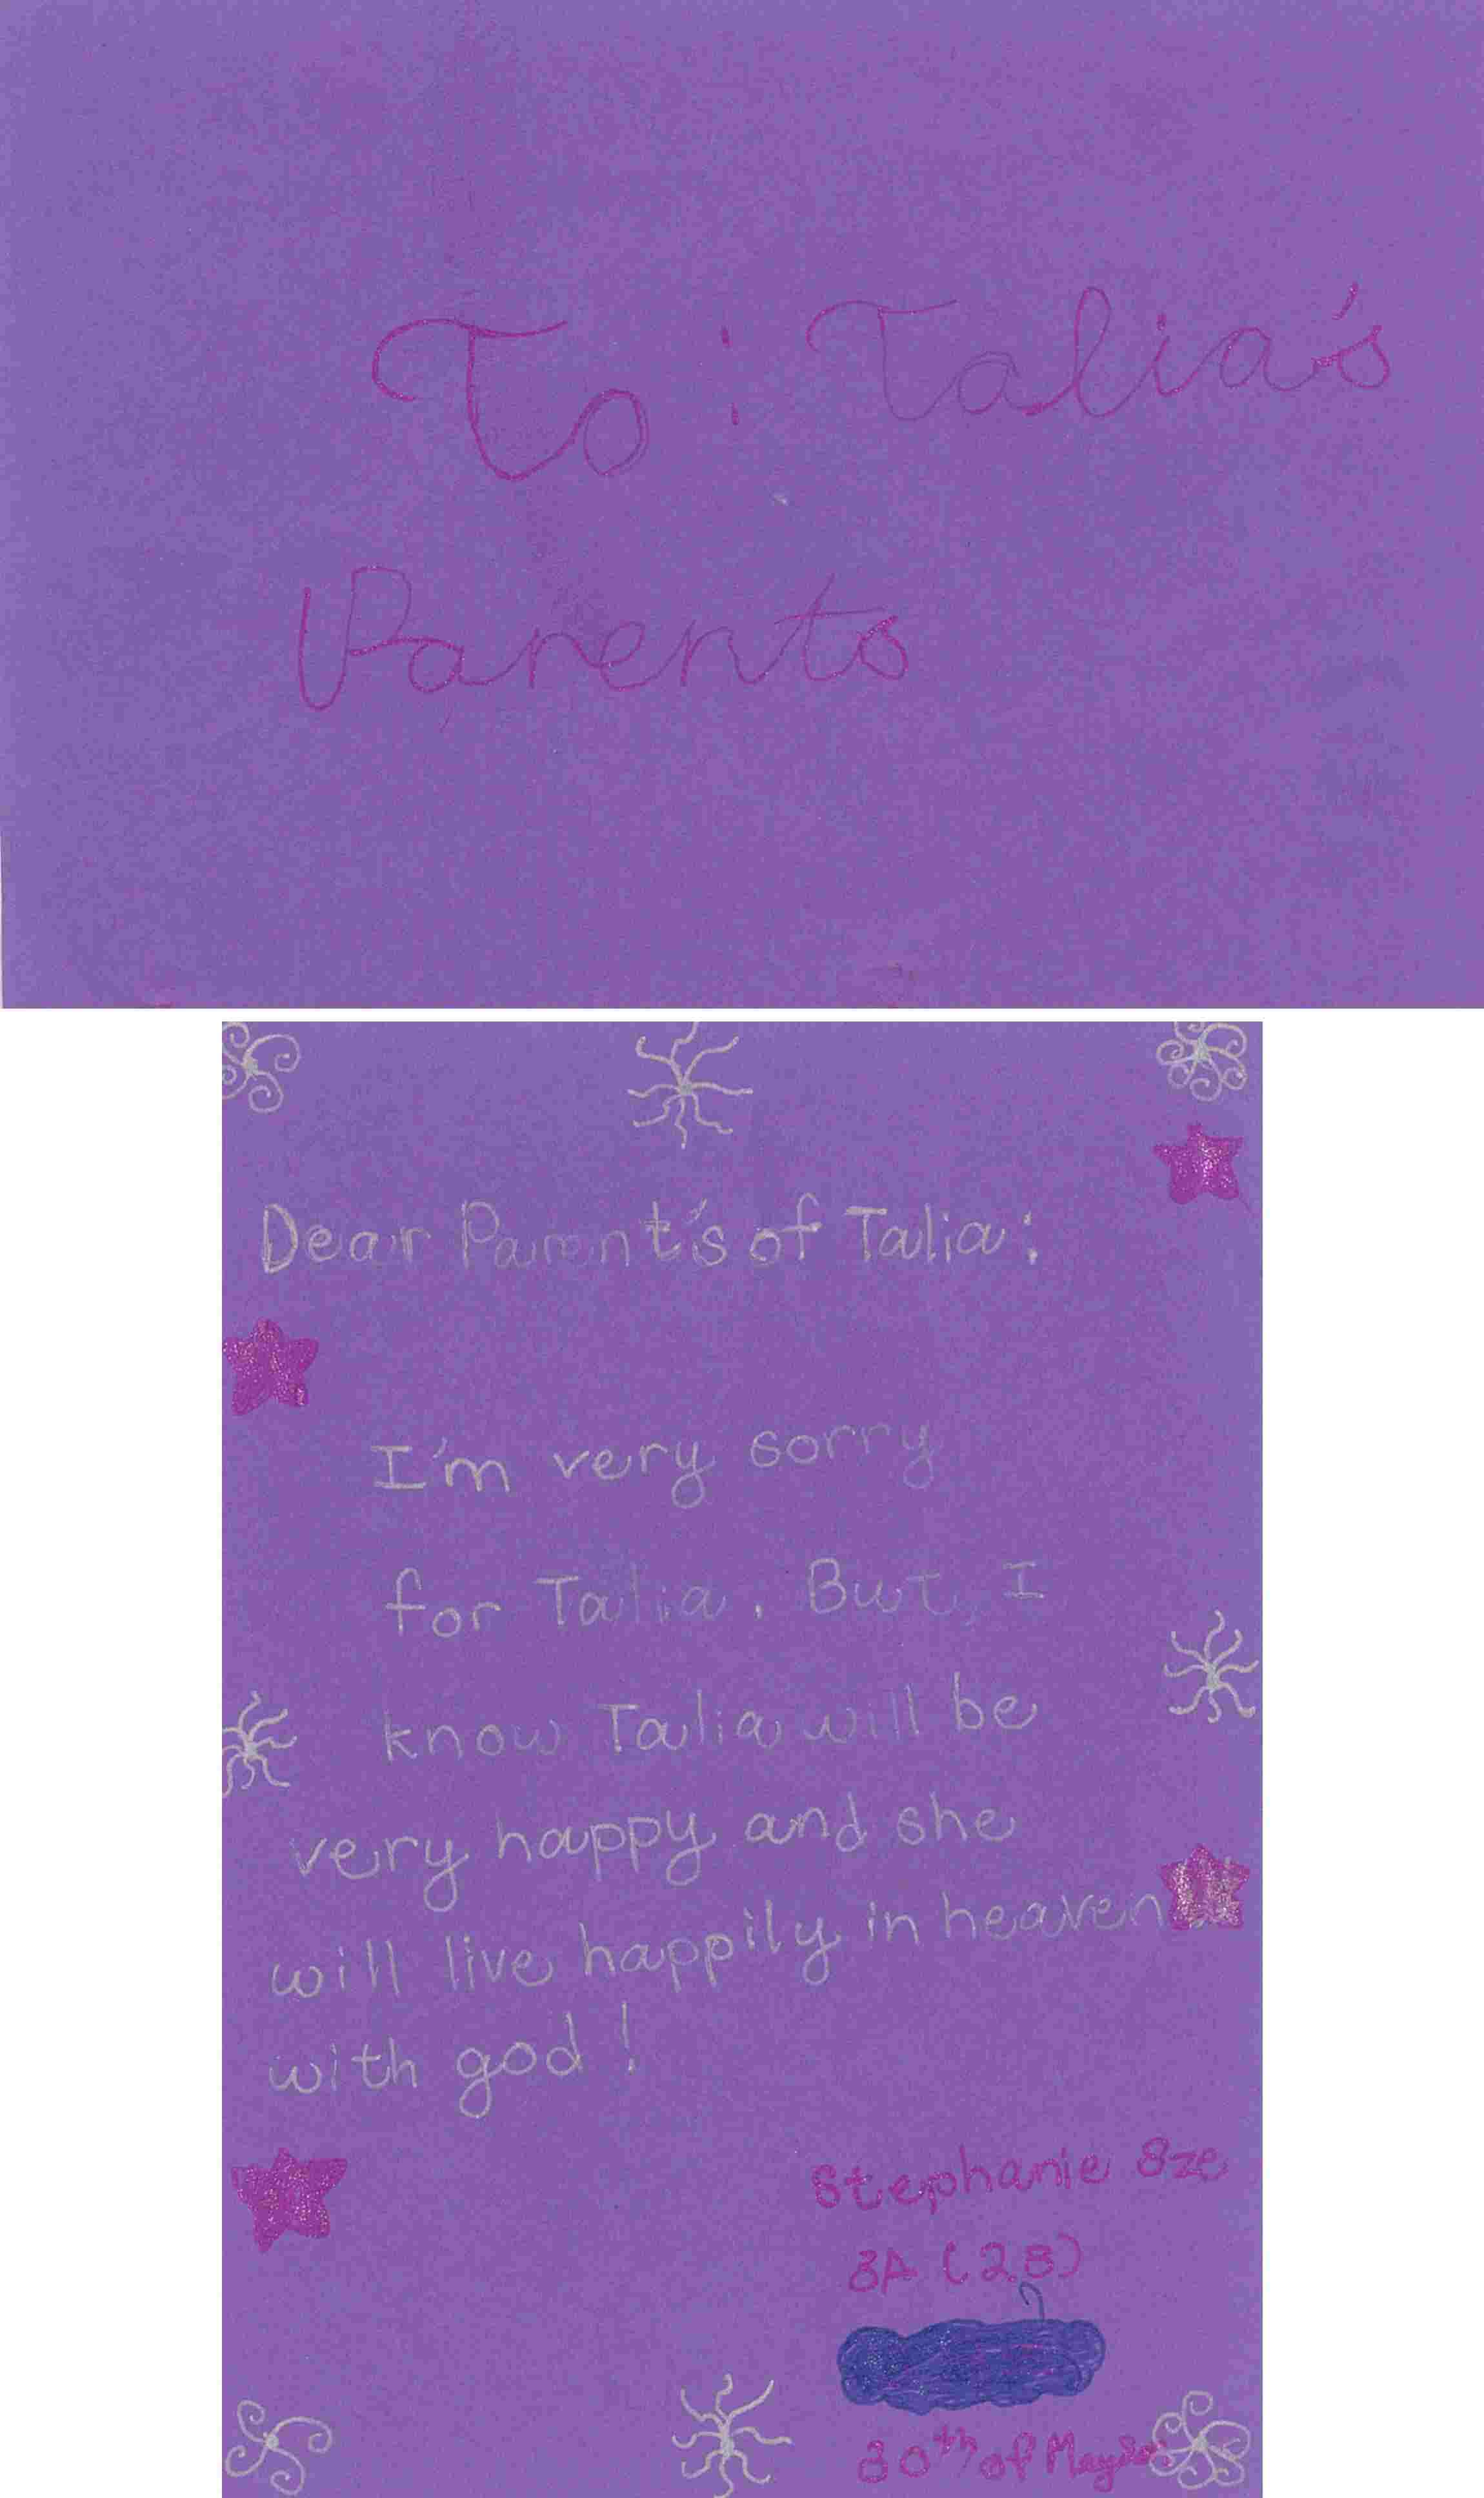 To: Talia's
Parents
Dear Parent's of Talia:
I'm very sorry
for Talia. But, I
know Talia will be
very happy and she
will live happily in heaven
with god!
Stephanie Sze
3A (28)
30th of May